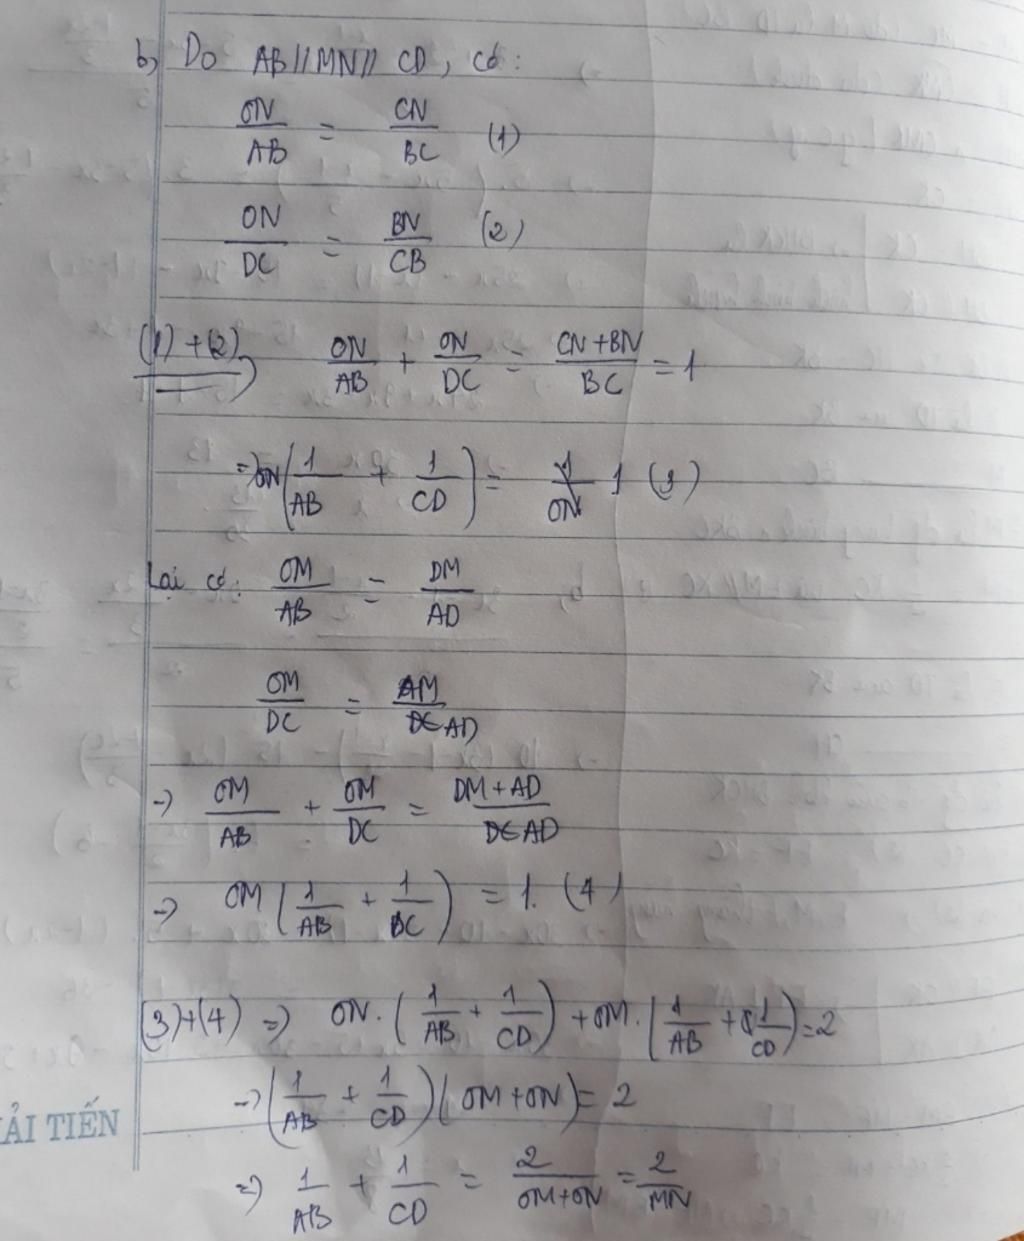 b, Do AB//MN// CD, có:
ON/AB = CN/BC (1)
ON/DC = BN/CB (2)
(1)+(2) ON/AB + ON/DC = CN+BN/BC = 1
=> ON(1/AB + 1/CD) = 1 (3)
Lại có: OM/AB = DM/AD
OM/DC = AM/AD
-> OM/AB + OM/DC = DM+AD/AD
-> OM(1/AB + 1/DC) = 1. (4)
(3)+(4) => ON.(1/AB + 1/CD) + OM.(1/AB + 1/CD) = 2
-> (1/AB + 1/CD)(OM+ON) = 2
=> 1/AB + 1/CD = 2/OM+ON = 2/MN
ẢI TIẾN